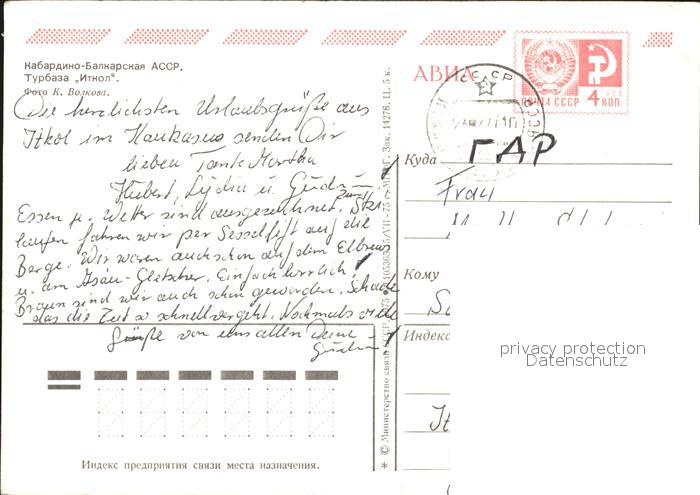 Кабардино-Балкарская АССР.
Турбаза „Иткол".
Фото К. Волкова.
Die herzlichsten Urlaubsgrüße aus
Itkol im Kaukasus senden Dir
lieben Tante Martha
Hubert, Lydia u. Gudrun
Essen u. Wetter sind ausgezeichnet. Zum Ski-
laufen fahren wir per Sessellift auf die
Berge. Wir waren auch schon auf dem Elbrus
u. am Asau-Gletscher. Einfach herrlich!
Braun sind wir auch schon geworden. Schade
das die Zeit so schnell vergeht. Nochmals viele
Grüße von uns allen Deine
Gudrun
Индекс предприятия связи места назначения.
* © Министерство связи СССР. 1975 *
Зак. 14276. Ц. 5 к.
АВИА
СССР
ПОЧТА СССР 4 КОП.
ГДР
Куда
Frau
Кому
Индекс
privacy protection
Datenschutz